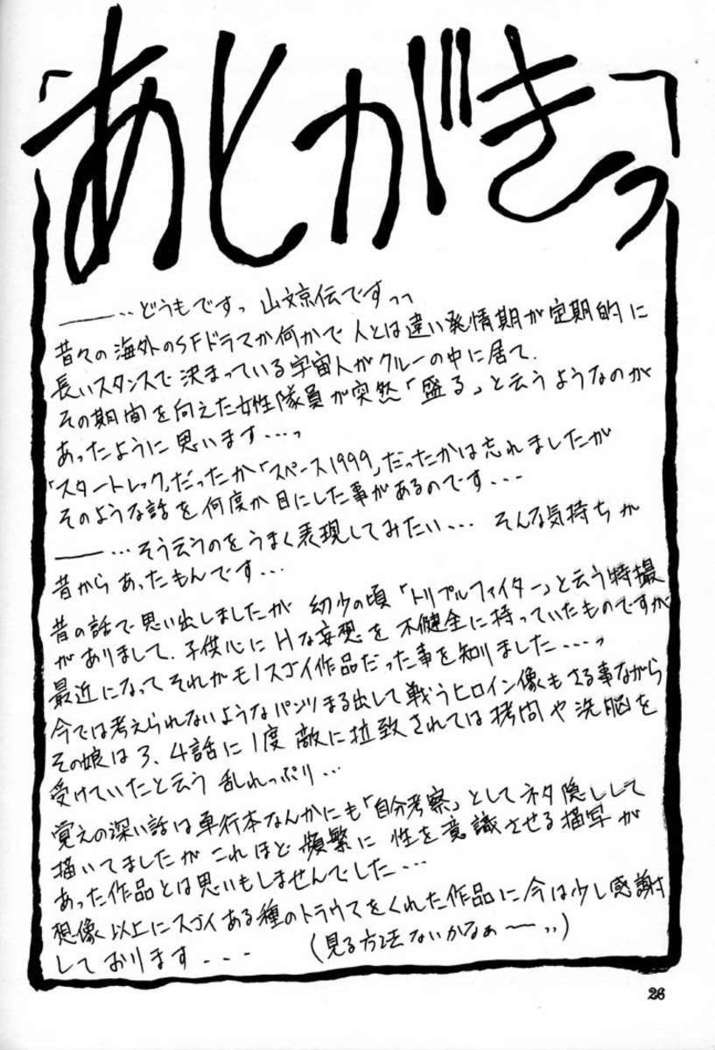 あとがきっ
――‥どうもですっ 山文京伝ですっっ
昔々の海外のSFドラマか何かで 人とは違い発情期が定期的に
長いスタンスで決まっている宇宙人がクルーの中に居て.
その期間を向えた女性隊員が突然「盛る」と云うようなのが
あったように思います・・・っ
「スタートレック」だったか「スペース1999」だったかは忘れましたが
そのような話を何度か目にした事があるのです・・・
――・・・そう云うのをうまく表現してみたい・・・ そんな気持ちが
昔からあったもんです・・・
昔の話で思い出しましたが 幼少の頃「トリプルファイター」と云う特撮
がありまして、子供心にHな妄想を不健全に持っていたものですが
最近になってそれがモノスゴイ作品だった事を知りました・・・・っ
今では考えられないようなパンツまる出しで戦うヒロイン像もさる事ながら
その娘は3、4話に1度 敵に拉致されては拷問や洗脳を
受けていたと云う 乱れっぷり・・・
覚えの深い話は単行本なんかにも「自分考察」としてネタ隠しして
描いてましたが これほど頻繁に 性を意識させる描写が
あった作品とは思いもしませんでした・・・
想像以上にスゴイある種のトラウマをくれた作品に今は少し感謝
しております・・・ (見る方法ないかなぁ〜‥)
26